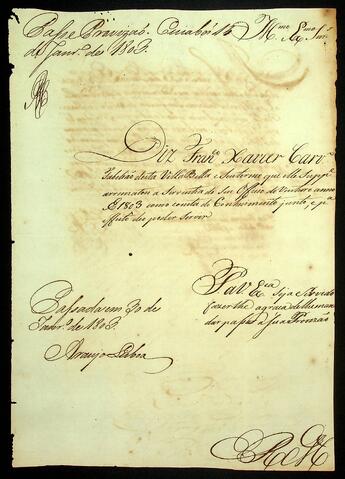 Passe Provizão. Cuiabá 15
de Janr.º de 1803.
Ill.mo e Ex.mo Snr.
Diz Fran.co Xavier Carv.
Tabelião desta Villa Bella e Interino que elle Supp.e
arrematou a Serventia de seu Officio
de 1803 como consta do Conhecimento junto, e p.a
effeito de poder Servir
P. a V. Ex.cia seja Servido
fazer lhe a graça de lhe man
dar passar a sua Provizão
Passada em 30 de
Janr.º de 1803.
Araujo
E R M.ce